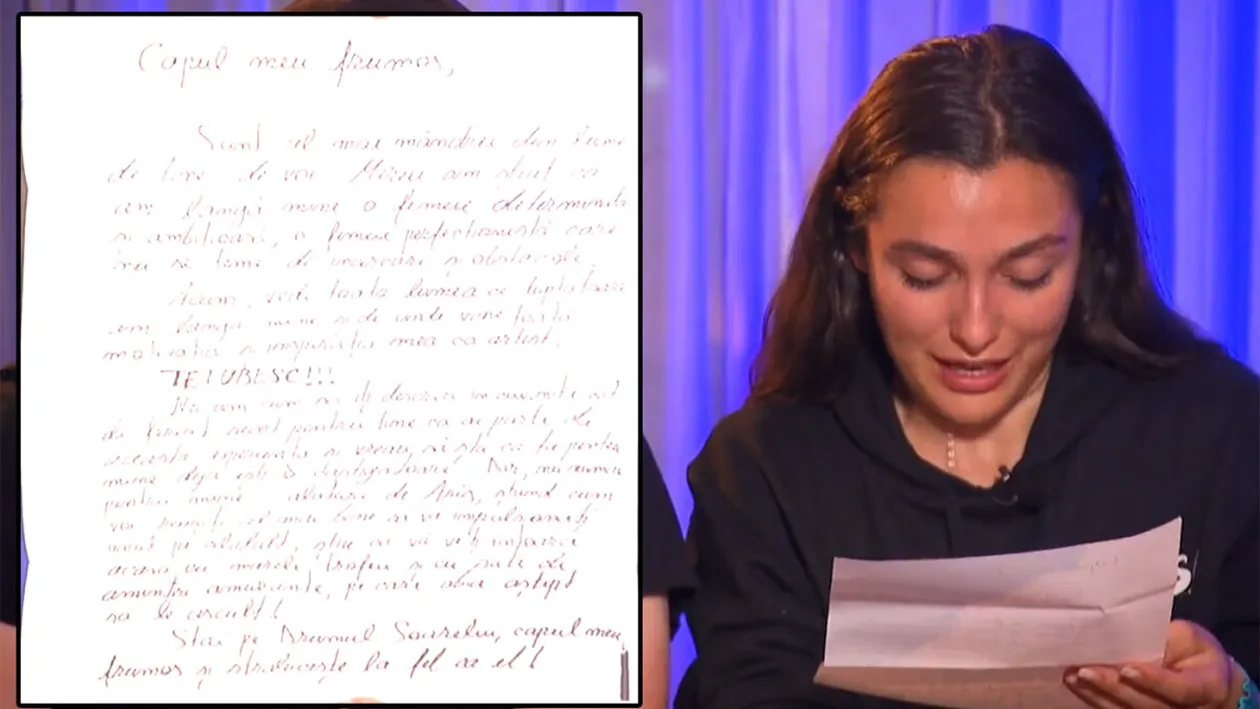 Capul meu frumos,
Sunt cel mai mândru din lume
de tine, de voi. Mereu am știut ca
am langă mine o femeie determinata
si ambitioasă, o femeie perfectionistă care
nu se teme de incercari și obstacole.
Acum, vede toata lumea ce luptatoare
am langă mine si de unde vine toata
motivatia si inspirația mea ca artist.
TE IUBESC!!!
Nu am cum sa iți descriu in cuvinte cat
de fericit sunt pentru tine ca ai parte de
aceasta experienta si vreau să stii ca tu pentru
mine deja ești o castigatoare! Dar, nu numai
pentru mine, alaturi de Ania, știind cum
voi reușiți cel mai bine sa va impulsionați
una pe cealaltă, știu ca va veți intoarce
acasa cu marele trofeu si cu sute de
amintiri amuzante, pe care abia aștept
sa le ascult!
Stai pe Drumul Soarelui, capul meu
frumos și straluceste la fel ca el!
S